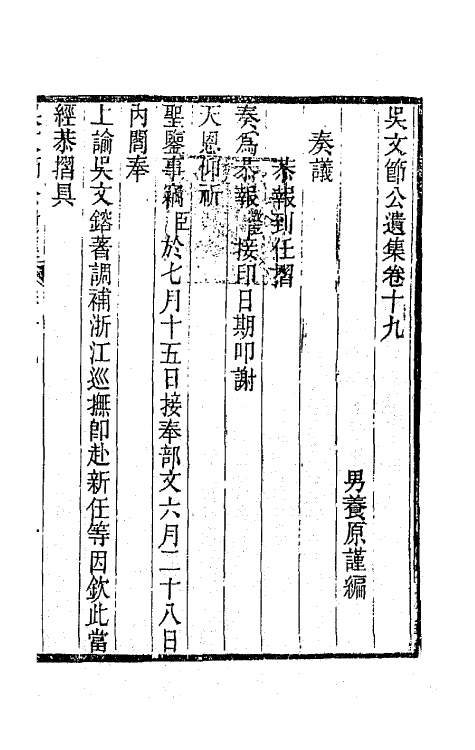 吳文節公遺集卷十九
男養原謹編
奏議
恭報到任摺
奏為恭報接印日期叩謝
天恩仰祈
聖鑒事竊臣於七月十五日接奉部文六月二十八日
內閣奉
上諭吳文鎔著調補浙江巡撫卽赴新任等因欽此當
經恭摺具